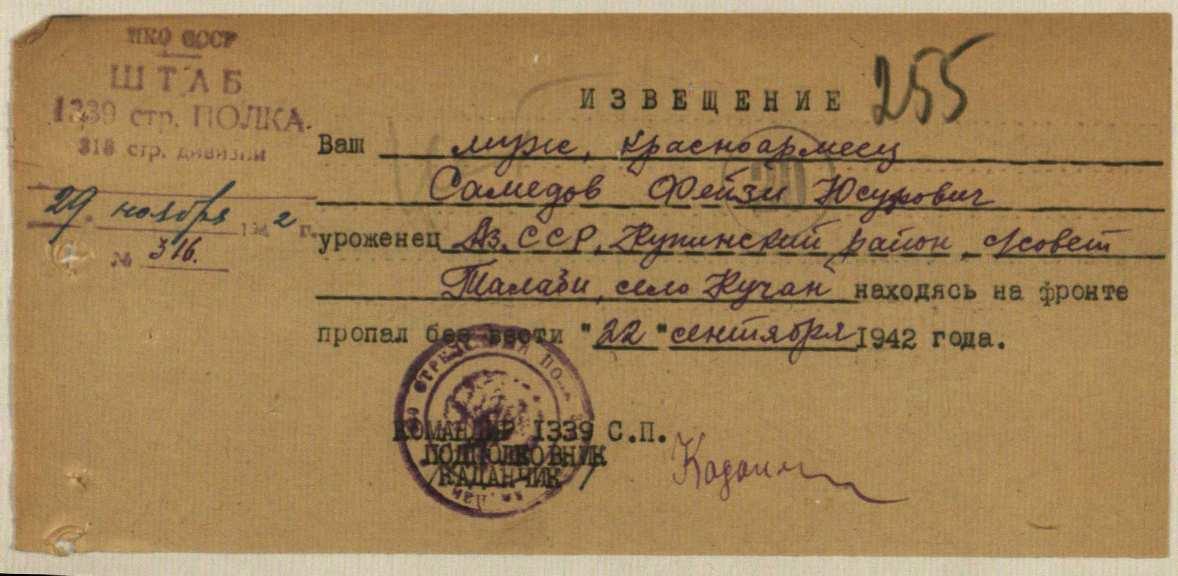 НКО СССР
ШТАБ
1339 стр. ПОЛКА.
318 стр. дивизии
29 ноября 1942 г.
№ 316.
ИЗВЕЩЕНИЕ 255
Ваш муж, красноармеец
Самедов Фейзи Юсуфович
уроженец Аз. ССР, Кубинский район, с/совет
Талаби, село Кучан находясь на фронте
пропал без вести "22" сентября 1942 года.
КОМАНДИР 1339 С.П.
ПОДПОЛКОВНИК
/КАДАНЧИК/